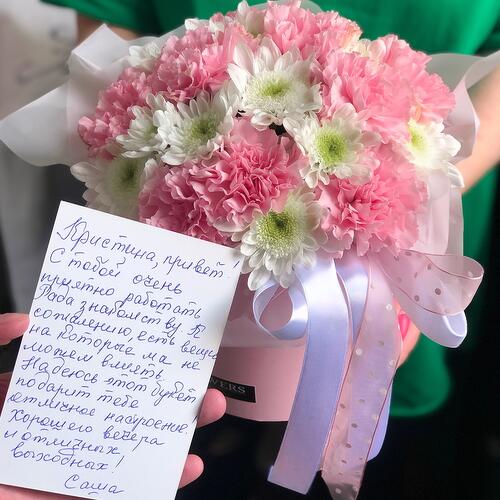 Кристина, привет.
С тобой очень
приятно работать
Рада знакомству. К
сожалению, есть вещи
на которые ма не
можем влиять.
Надеюсь этот букет
подарит тебе
отличное настроение,
Хорошего вечера
и отличных
выходных!
Саша
WERS